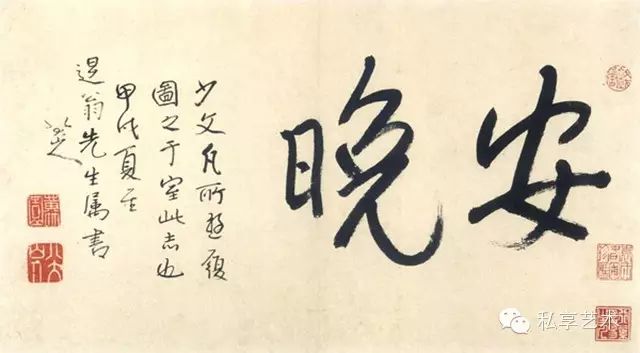 安晚
少文凡所遊履
圖之于室此志也
甲戌夏至
退翁先生属書
八大山人
私享艺术